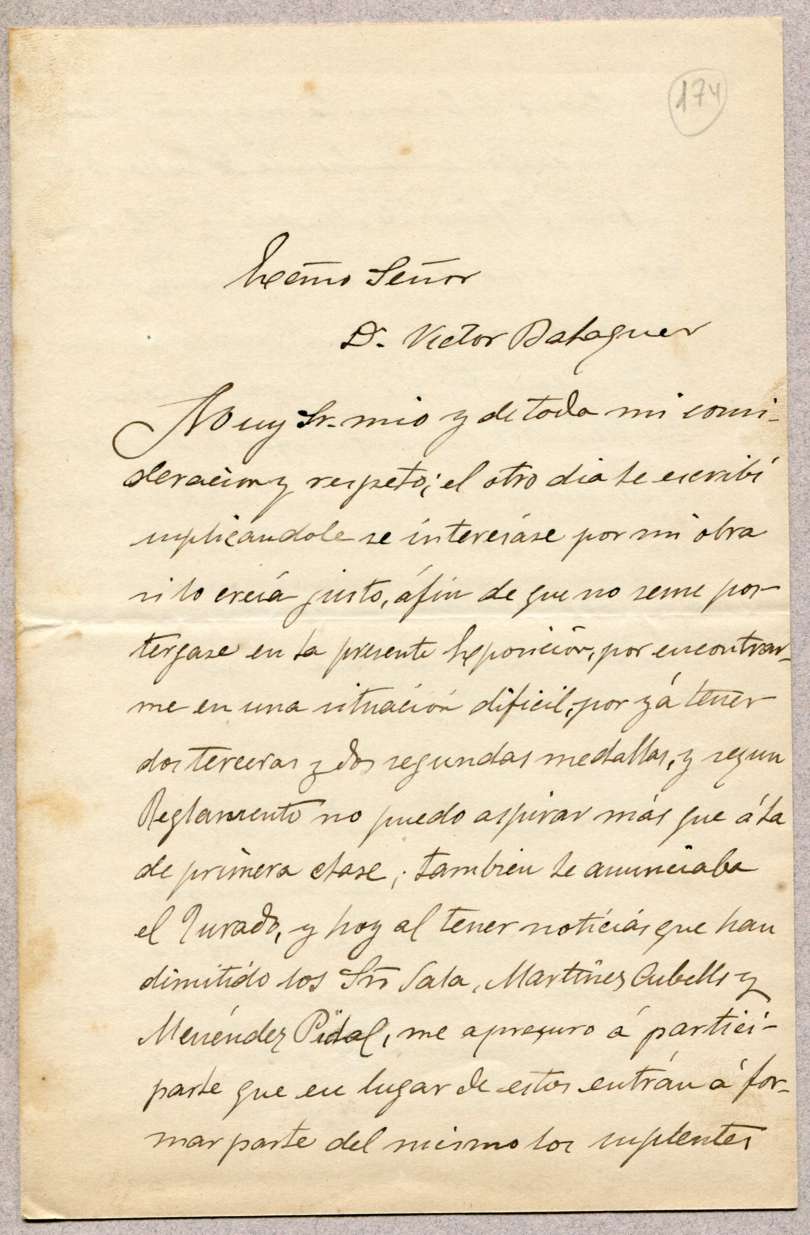 174
Excmo Señor
Dn. Victor Balaguer
Muy Sr. mio y de toda mi consi-
deración y respeto; el otro dia le escribí
suplicandole se interesáse por mi obra
si lo creía justo, áfin de que no seme pos-
tergase en la presente Exposición, por encontrar-
me en una situación dificil, por yá tener
dos terceras y dos segundas medallas, y segun
Reglamento no puedo aspirar más que á la
de primera clase; tambien le anunciaba
el Jurado, y hoy al tener notícias que han
dimitido los Srs Sala, Martínez Cubells y
Menéndez Pidal, me apresuro á partici-
parle que en lugar de estos entrán á for-
mar parte del mismo los suplentes